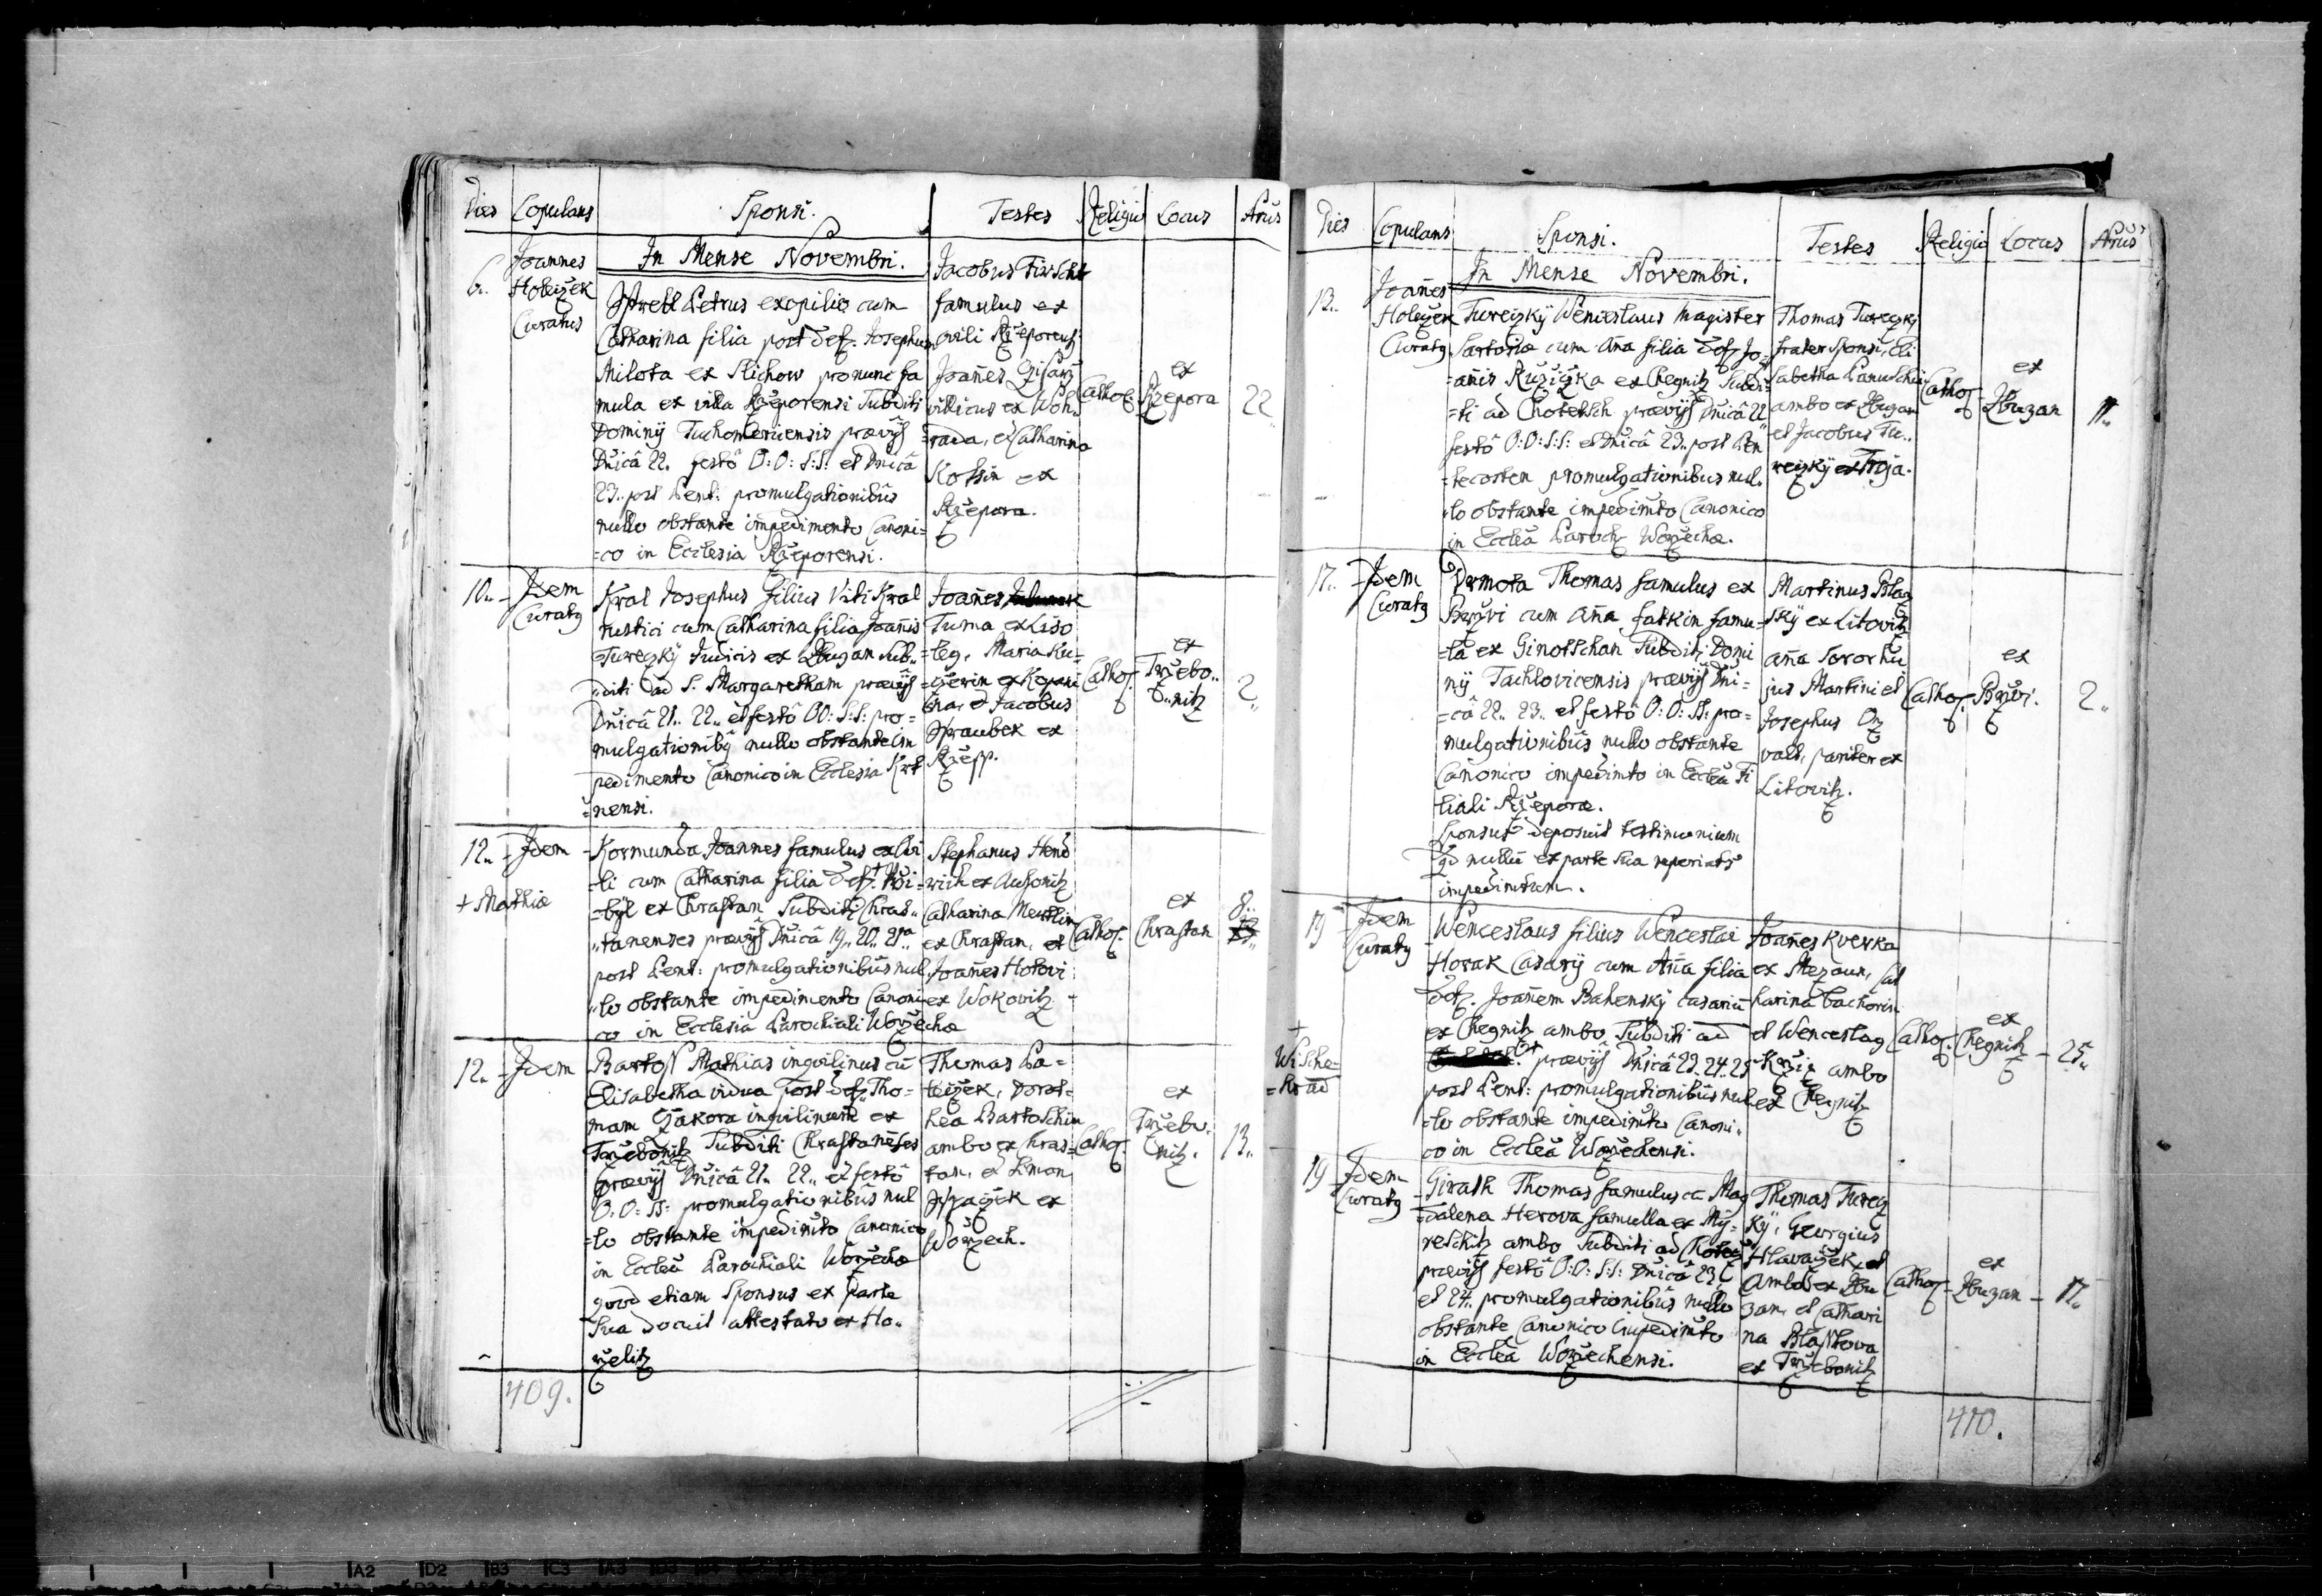 Dies Copulans Sponsi. Testes Religio Locus Nrus
In Mense Novembri.
6. Joannes
Holeczek
Curatus
Petrus exopilio cum
Catharina filia post def. Josephum
Milota ex Slichow pronunc fa
mula ex villa Rzeporensi Subditi
Dominij Tuchomericensis praevijs
Dnicâ 22. festô O: O: S:S: et Dnicâ
23. post Pent: promulgationibus
nullo obstante impedimento Canoni=
=co in Ecclesia Rzeporensi.
Jacobus
famulus ex
ovili Rzeporens
Joañes
villicus ex Woh
rada, et Catharina
Kotsin ex
Rzepora.
Cathol.
ex
Rzepora
22
10. Idem
Curatg
Kral Josephus filius Viti Kral
rustici cum Catharina filia Joañis
Tureczky Judicis ex Zbuzan Sub
diti ad S. Margaretham praevijs
Dnicâ 21. 22. et festô OO: S:S: pro=
mulgationibg nullo obstante Im
pedimento Canonico in Ecclesia Krt
=nensi.
Joañes
Tuma ex Liso
leg, Maria Ku=
czerin ex Kopani
na, et Jacobus
Straubek ex
Rzepp.
Cathol.
ex
Trzebo
nitz
2
12. Idem
+ Mathiae
Kormunda Joannes famulus ex Cvi
li cum Catharina filia def. + Przi=
byl ex Chrastan Subditi Chras
tanenses praevijs Dnicâ 19. 20. 21a
post Pent: promulgationibus nul
lo obstante impedimento Canoni
co in Ecclesia Parochiali Worzecha
Stephanus Hend
rich ex Auhonitz
Catharina Merklin
ex Chrastan, et
Joañes Hotovi
ex Wokovitz
Cathol.
ex
Chrastan
8
12. Idem
Bartoss Mathias inquilinus cũ
Elisabetha vidua post def. Tho=
mam Czakora inquilinum ex
Trzebonitz Subditi Chrastaneses
praevijs Dnicâ 21. 22. et festô
O: O: SS: promulgationibus nul
lo obstante impedimto Canonico
in Ecclea Parochiali Worzecha
quod etiam Sponsus ex parte
Sua docuit attestato ex Ho
rzelitz
Thomas Pa=
leczek, Dorot=
hea Bartoschin
ambo ex Chras=
tan, et Simon
ex
Worzech.
Cathol.
ex
Trzebo
nitz.
13.
409.
Dies Copulans Sponsi. Testes Religio Locus Nrus
In Mense Novembri.
13. Joañes
Holeczek
Curatg
Tureczky Wenceslaus Magister
Sartoriae cum Aña filia def. Jo=
=anis Ruziczka ex Chegnitz Subdi=
=ti ad Chotetsch praevijs Dnicâ 22
festô O: O: S:S: et Dnicâ 23. post Pen
=tecosten promulgationibus nul
lo obstante impedimto Canonico
in Ecclea Paroch. Worzecha.
Thomas Tureczky
frater Sponsi, Eli
sabetha Hanuschin
ambo ex Zbuzan
et Jacobus Tu
reczky ex Troja.
Cathol.
ex
Zbuzan
11.
17. Idem
Curatg
Drmota Thomas famulus ex
Brzvi cum aña fatkin famu=
=la ex Ginotschan Subditi Domi
nij Tachlovicensis praevijs Dni=
=câ 22. 23. et festô O: O: SS: pro=
mulgationibus nullo obstante
Canonico impedimto in Ecclea Fi
liali Rzeporae.
Sponsus deposuit testimonium
qd nullũ ex parte sua reperiatr
impedimtum.
Martinus
sky ex Litovitz
aña Soror hu
jus Martini et
Josephus
vald, pariter ex
Litovitz.
Cathol.
ex
Brzvi.
2
19 Idem
Curatg
+
Wische=
=hrad
Wenceslaus filius Wenceslai
Horak Casarij cum Aña filia
def. Joañem Bahensky casariũ
ex Chegnitz ambo Subditi ad
+ praevijs Dnicâ 23. 24. 25
post Pent: promulgationibus nul
=lo obstante impedimto Canoni
co in Ecclea Worzechensi.
Joañes Kverka
ex Mezaun, Cat
harina Cachorin
et Wenceslag
Krziz ambo
ex Chegnitz
Cathol.
ex
Chegnitz
25.
19 Idem
Curatg
Girath Thomas famulus cũ Mag
dalena Herova famulla ex My=
reschitz ambo Subditi ad
praevijs festô O: O: S:S: Dnicâ 23
et 24. promulgationibus nullo
obstante Canonico Impedimto
in Ecclea Worzechensi.
Thomas Turecz
ky, Georgius
Hlavaczek, et
Ambo ex Zbu
zan, et Cathari
na
ex Trzebonitz
Cathol.
ex
Zbuzan
17.
410.